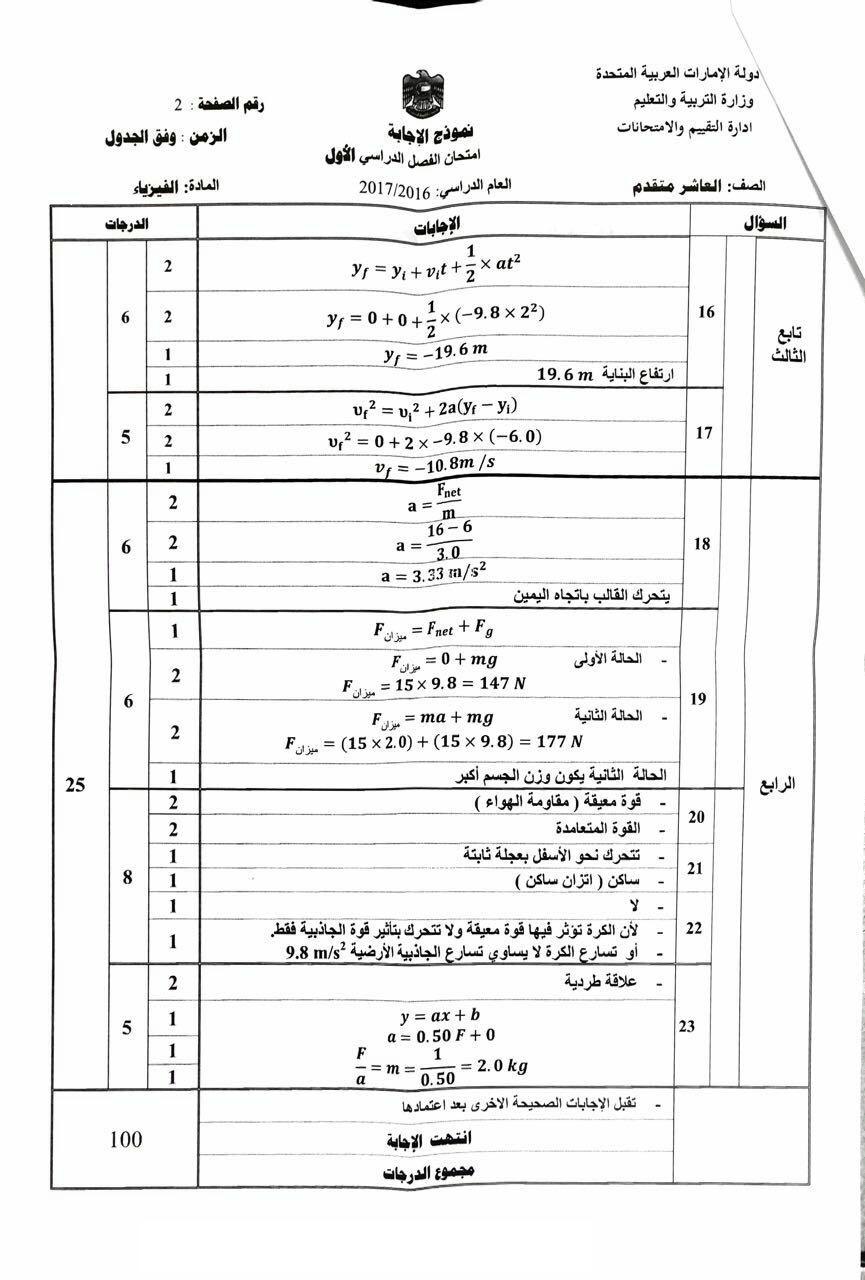 دولة الإمارات العربية المتحدة
وزارة التربية والتعليم
ادارة التقييم والامتحانات
نموذج الإجابة
امتحان الفصل الدراسي الأول
رقم الصفحة : 2
الزمن : وفق الجدول
الصف: العاشر متقدم
العام الدراسي: 2017/2016
المادة: الفيزياء
السؤال الإجابات الدرجات
تابع الثالث
16
y_f = y_i + v_i t + 1/2 × at² 2
y_f = 0 + 0 + 1/2 × (−9.8 × 2²) 2
6
y_f = −19.6 m 1
ارتفاع البناية 19.6 m 1
17
υ_f² = υ_i² + 2a(y_f − y_i) 2
υ_f² = 0 + 2 × −9.8 × (−6.0) 2
5
v_f = −10.8m /s 1
الرابع
25
18
a = F_net / m 2
a = 16 − 6 / 3.0 2
6
a = 3.33 m/s² 1
يتحرك القالب باتجاه اليمين 1
19
F_ميزان = F_net + F_g 1
- الحالة الأولى F_ميزان = 0 + mg
F_ميزان = 15 × 9.8 = 147 N 2
6
- الحالة الثانية F_ميزان = ma + mg
F_ميزان = (15 × 2.0) + (15 × 9.8) = 177 N 2
الحالة الثانية يكون وزن الجسم أكبر 1
20
- قوة معيقة ( مقاومة الهواء ) 2
- القوة المتعامدة 2
21
- تتحرك نحو الأسفل بعجلة ثابتة 1
8
- ساكن ( اتزان ساكن ) 1
22
- لا 1
- لأن الكرة تؤثر فيها قوة معيقة ولا تتحرك بتأثير قوة الجاذبية فقط.
- أو تسارع الكرة لا يساوي تسارع الجاذبية الأرضية 9.8 m/s² 1
23
- علاقة طردية 2
y = ax + b 1
5
a = 0.50 F + 0 1
F/a = m = 1/0.50 = 2.0 kg 1
- تقبل الإجابات الصحيحة الاخرى بعد اعتمادها
انتهت الإجابة
100
مجموع الدرجات